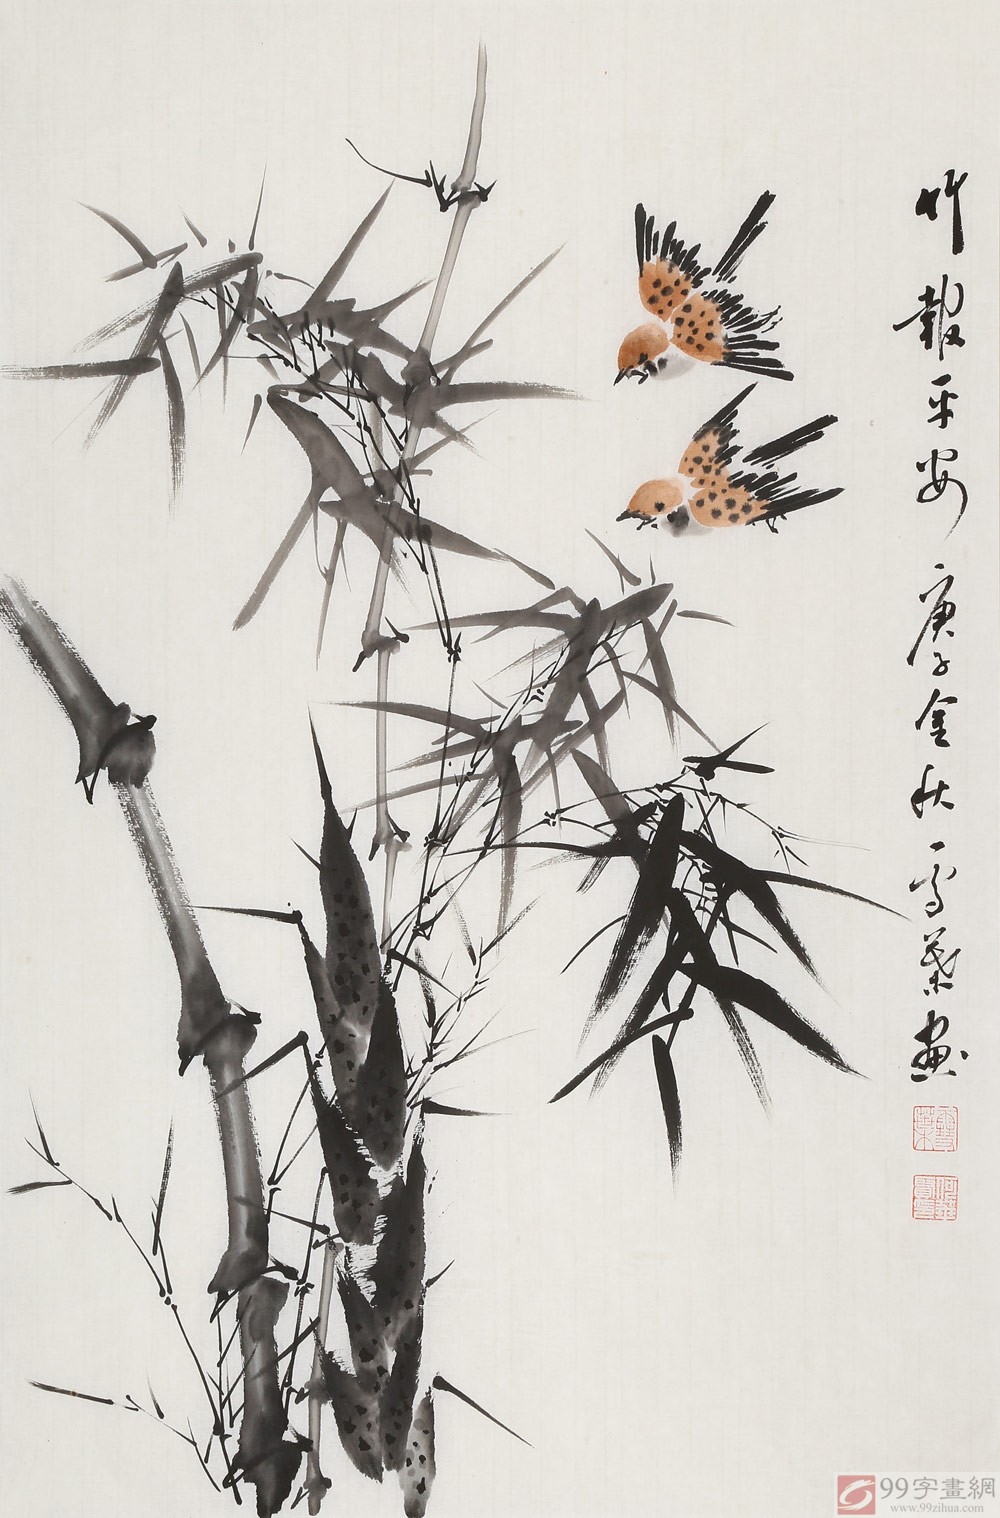 竹報平安 庚子金秋雪葉畫
99字畫網
www.99zihua.com